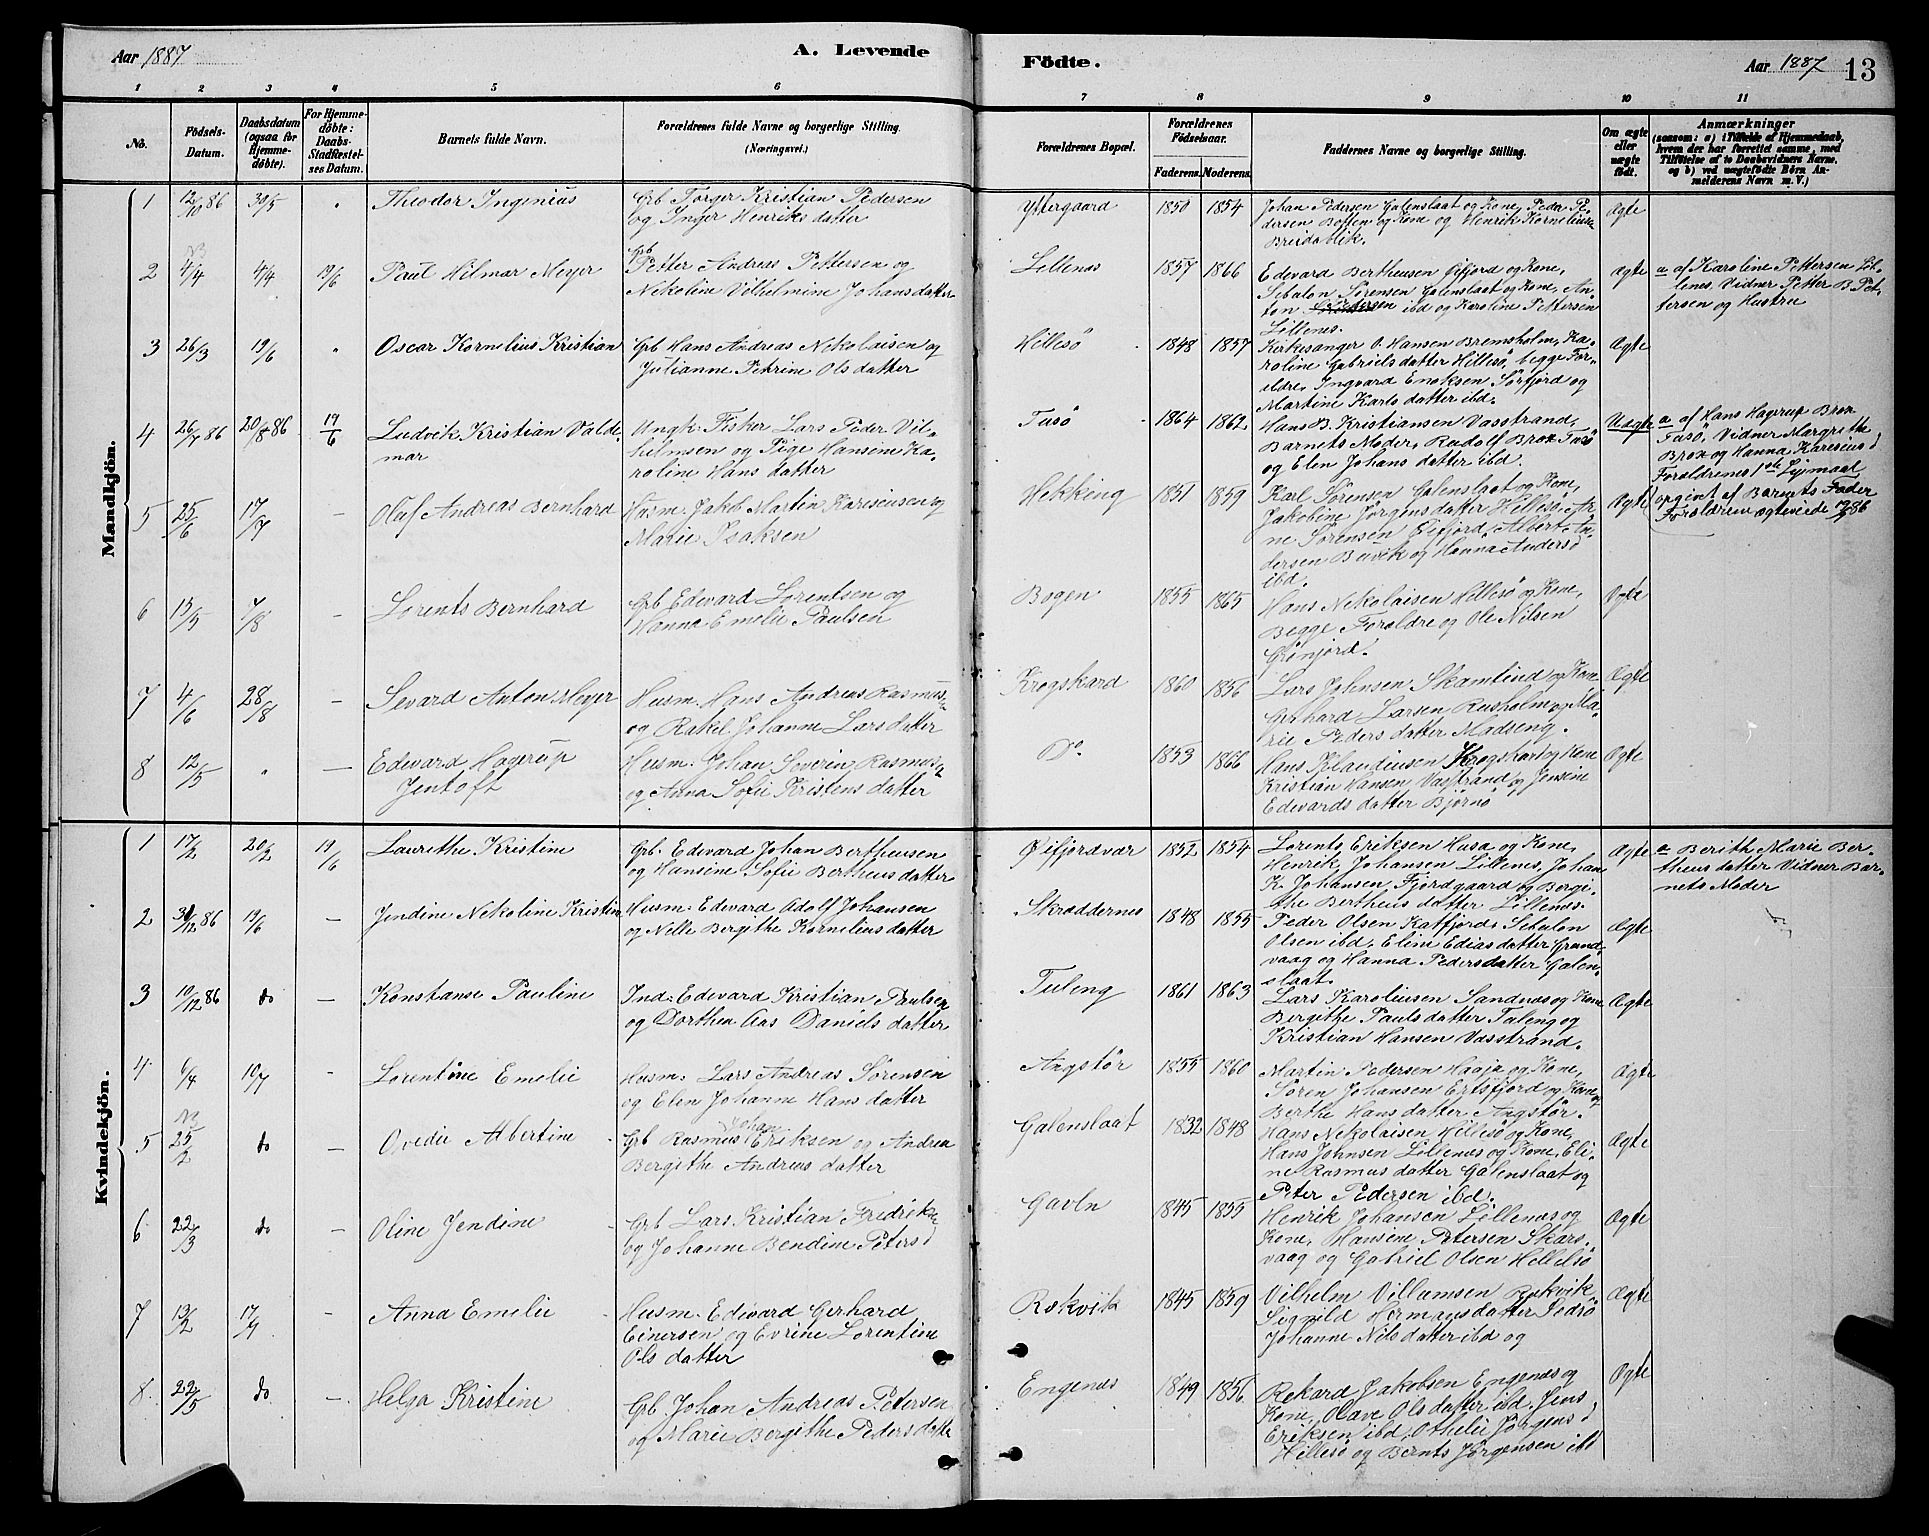 Aar 1887
A. Levende
Födte.
Aar 1887
13
1 2 3 4 5 6 7 8 9 10 11
No.
Födsels-
Datum.
Daabsdatum
(ogsaa for
Hjemme-
döbte).
For Hjemme-
döbte:
Daabs-
Stadfæstel-
ses Datum.
Barnets fulde Navn.
Forældrenes fulde Navne og borgerlige Stilling.
(Næringsvei.)
Forældrenes Bopæl.
Forældrenes
Födselsaar.
Faderens. Moderens.
Faddernes Navne og borgerlige Stilling.
Om ægte
eller
uægte
født.
Anmærkninger
(saasom: a) i Tilfælde af Hjemmedaab,
hvem der har forrettet samme, med
Tilföielse af to Daabsvidners Navne,
og b) ved uægtefödte Börn An-
melderens Navn m.V.)
Mandkjön.
1 12/10 86 30/5 Theodor Ingenius
Grb Torger Kristian Pedersen
og Inger Henriksdatter
Yttergaard 1850 1854
Johan Pedersen Galenslaat og Kone, Peder Pe-
dersen Botten og Kone og Henrik Kornelius
Breidablik.
Ægte
2 4/4 4/4 19/6 Paul Hilmar Meyer
Grb
Petter Andreas Pettersen og
Nekoline Vilhelmine Johansdatter
Lillenæs 1857 1866
Edevard Bertheusen Øifjord og Kone,
Sebulon Sörensen Galenslaat og Kone, An-
ton ibd og Karoline Pettersen
Lillenes.
Ægte
a af Karoline Pettersen Lil-
lenes. Vidner Petter B. Pet-
tersen og Hustru
3 26/3 19/6 Oscar Kornelius Kristian
Grb Hans Andreas Nekolaisen og
Julianne Petrine Olsdatter
Hillesö 1848 1857
Kirkesanger O. Hansen Bremsholm, Ka-
roline Gabrielsdatter Hillesö, begge For-
eldre, Ingvard Enoksen Sörfjord og
Martine Karlsdatter ibd.
Ægte
4 26/7 86 20/8 86 19/6 Ludvik Kristian Valde-
mar
Ungk. Fisker Lars Peder Vil-
helmsen og Pige Hansine Ka-
roline Hansdatter
Tusö 1864 1862
Hans B. Kristiansen Vasstrand,
Barnets Moder, Radolf Brox Tusö
og Elen Johansdatter ibd.
Uægte
a. af Hans Hagerup Brox
Tusö, Vidner Margrethe
Brox og Hanna Karesiusd
Foreldrenes 1ste Lejmaal
opgivet af Barnets Fader
Foreldrene ægteviede 86
5 25/6 17/7 Olaf Andreas Bernhard
Husm. Jakob Martin Karesiusen og
Marie Isaksen
Hekking 1851 1859
Karl Sörensen Galenslaat og Kone,
Jakobine Jørgensdatter Hillesö, Ar-
ne Sørensen Øifjord, Albert An-
dersen Buvik og Hanna Andersd
ibd.
Ægte
6 15/5 7/8 Lorents Bernhard
Grb Edevard Lorentsen og
Hanna Emelie Paulsen
Bogen 1855 1865
Hans Nekolaisen Hillesö og Kone,
Begge Foreldre og Ole Nilsen
Grönjord.
Ægte
7 4/6 28/8 Sevard Anton Meyer
Husm. Hans Andreas Rasmus-
og Rakel Johanne Larsdatter
Krogskard 1860 1856
Lars Johnsen Skamtind og Kone
Gerhard Larsen Rusholm og Ma-
rie Pedersdatter Madseng.
Ægte
8 12/5 Edevard Hagerup
Jentoft
Husm. Johan Severin Rasmus-
og Anna Sofie Kristensdatter
Do. 1853 1866
Hans Klaudiusen Krogskard og Kone
Kristian Hansen Vasstrand og Jensine
Edevardsdatter Bjørnö
Ægte
Kvindekjön.
1 17/2 20/2 19/6 Laurethe Kristine
Grb. Edevard Johan Bertheusen
og Hansine Sofie Bertheusdatter
Øifjordvær 1852 1854
Lorents Eriksen Husa og Kone,
Henrik Johansen Lillenes, Johan
K. Johansen, Fjordgaard og Bergi-
the Bertheusdatter Lillenes.
Ægte
a Berith Marie Ber-
theusdatter Vidner Bar-
nets Moder
2 31/12 86 19/6 Jendine Nekoline Kristin
Husm. Edevard Adolf Johansen
og Nelle Bergithe Korneliusdatter
Skræddernes 1848 1855
Peder Olsen Katfjord, Sebulon
Olsen ibd, Eline Ediasdatter Grund-
vaag og Hanna Pedersdatter Galen-
slaat.
Ægte
3 10/12 86 do Konstanse Pauline
Ind. Edevard Kristian Paulsen
og Dorthea Aas Danielsdatter
Tuleng 1861 1863
Lars Karoliusen Sandnæs og Kone
Bergithe Paulsdatter Tuleng og
Kristian Hansen Vasstrand.
Ægte
4 6/4 10/7 Lorentine Emelie
Husm. Lars Andreas Sörensen
og Elen Johanne Hansdatter
Angstör 1855 1860
Martin Pedersen Haaja og Kone,
Sören Johansen Ertsfjord og Kone og
Berthe Hansdatter Angstör.
Ægte
5 25/2 do Ovedie Albertine
Johan
Grb Rasmus Eriksen og Andrea
Bergithe Andreasdatter
Galenslaat 1832 1848
Hans Nekolaisen Hillesö og Kone,
Hans Johnsen Lillenæs og Kone, Eli-
ne Rasmusdatter Galenslaat og
Peter Pedersen ibd.
Ægte
6 22/3 do Oline Jendine
Grb Lars Kristian Fredrik-
og Johanne Bendine Petersd
Gavln 1845 1855
Henrik Johansen Lillenæs og
Kone, Hansine Petersen Skars-
vaag og Gabriel Olsen Hellesö
Ægte
7 13/2 17/9 Anna Emelie
Husm. Edevard Gerhard
Einersen og Evrine Lorentine
Olsdatter
Rekvik 1845 1859
Vilhelm Villumsen Rekvik
Signild Hermansdatter Sedrö
Johanne Nilsdatter ibd og
Ægte
8. 22/5 do Helga Kristine
Grb. Johan Andreas Petersen
og Marie Bergithe Pedersdatte
Engenæs 1849 1856
Rekard Jakobsen Engenæs og
Kone, Olave Olsdatter ibd, Jens
Eriksen ibd, Othelie Jörgensd
Hillesö og Bernts Jörgensen ibd
Ægte